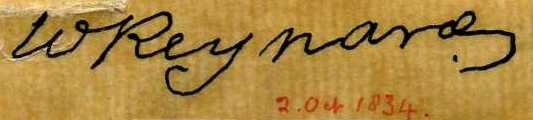 W Reynard
2. Oct 1834.